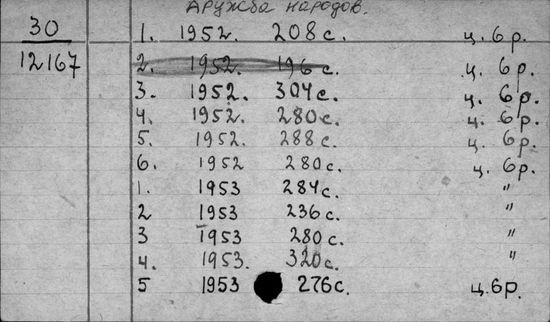 Дружба народов.
30
12167
1. 1952. 208 с. ц. 6 р.
2. 1952. 196 с. ц. 6 р.
3. 1952. 304 с. ц. 6 р.
4. 1952. 280 с. ц. 6 р.
5. 1952. 288 с. ц. 6 р.
6. 1952 280 с. ц. 6 р.
1. 1953 284 с. "
2 1953 236 с. "
3 1953 280 с. "
4. 1953. 320 с. "
5 1953 276 с. ц. 6 р.